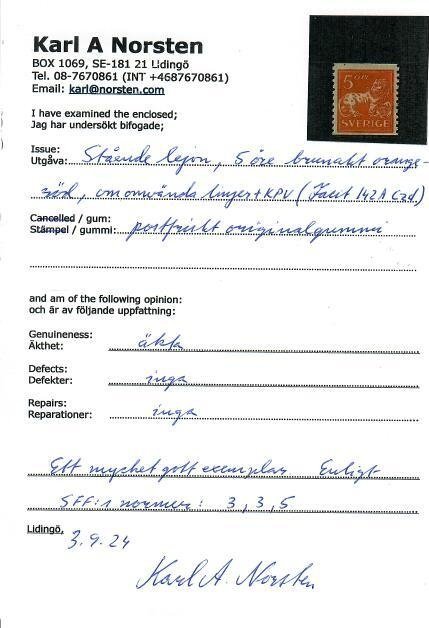 Karl A Norsten
BOX 1069, SE-181 21 Lidingö
Tel. 08-7670861 (INT +4687670861)
Email: karl@norsten.com
5 ÖRE
SVERIGE
I have examined the enclosed;
Jag har undersökt bifogade;
Issue:
Utgåva: Stående lejon, 5 öre brunakt orange-
röd, omvända linjer + KPV (Facit 142A cxd.)
Cancelled / gum:
Stämpel / gummi: postfriskt originalgummi
and am of the following opinion:
och är av följande uppfattning:
Genuineness:
Äkthet: äkta
Defects:
Defekter: inga
Repairs:
Reparationer: inga
Ett mycket gott exemplar Enligt
SFF:s normer: 3, 3, 5
Lidingö, 3.9.24
Karl A. Norsten